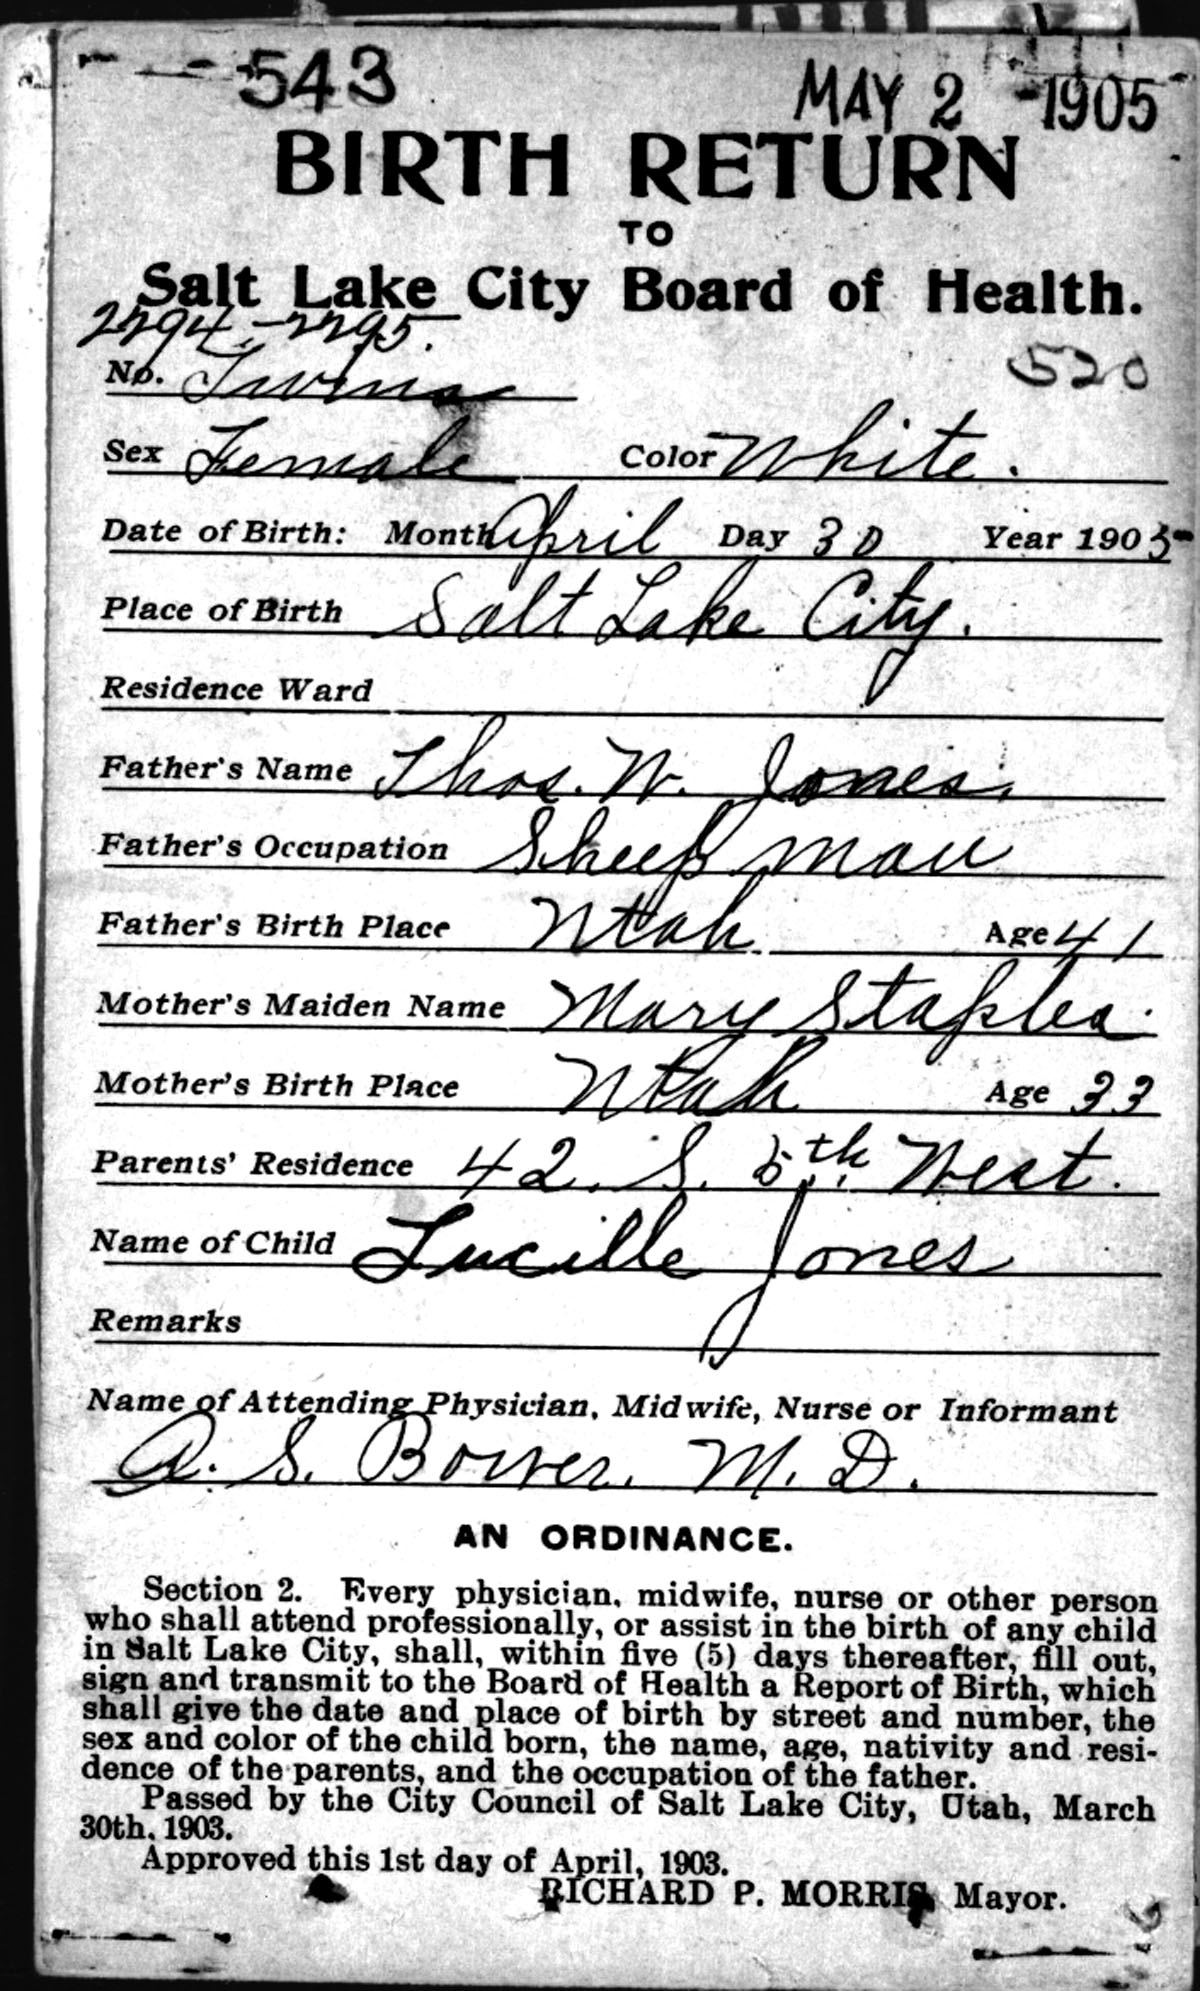 543 MAY 2 1905
BIRTH RETURN
TO
Salt Lake City Board of Health.
2294-2295.
No. Twins 520
Sex Female Color White.
Date of Birth: Month April Day 30 Year 1905
Place of Birth Salt Lake City.
Residence Ward
Father's Name Thos. W. Jones.
Father's Occupation Sheep man
Father's Birth Place Utah. Age 41
Mother's Maiden Name Mary Staples.
Mother's Birth Place Utah Age 33
Parents' Residence 42. S. 5th West.
Name of Child Lucille Jones
Remarks
Name of Attending Physician, Midwife, Nurse or Informant
A. S. Bower. M. D.
AN ORDINANCE.
Section 2. Every physician, midwife, nurse or other person
who shall attend professionally, or assist in the birth of any child
in Salt Lake City, shall, within five (5) days thereafter, fill out,
sign and transmit to the Board of Health a Report of Birth, which
shall give the date and place of birth by street and number, the
sex and color of the child born, the name, age, nativity and resi-
dence of the parents, and the occupation of the father.
Passed by the City Council of Salt Lake City, Utah, March
30th, 1903.
Approved this 1st day of April, 1903.
RICHARD P. MORRIS, Mayor.